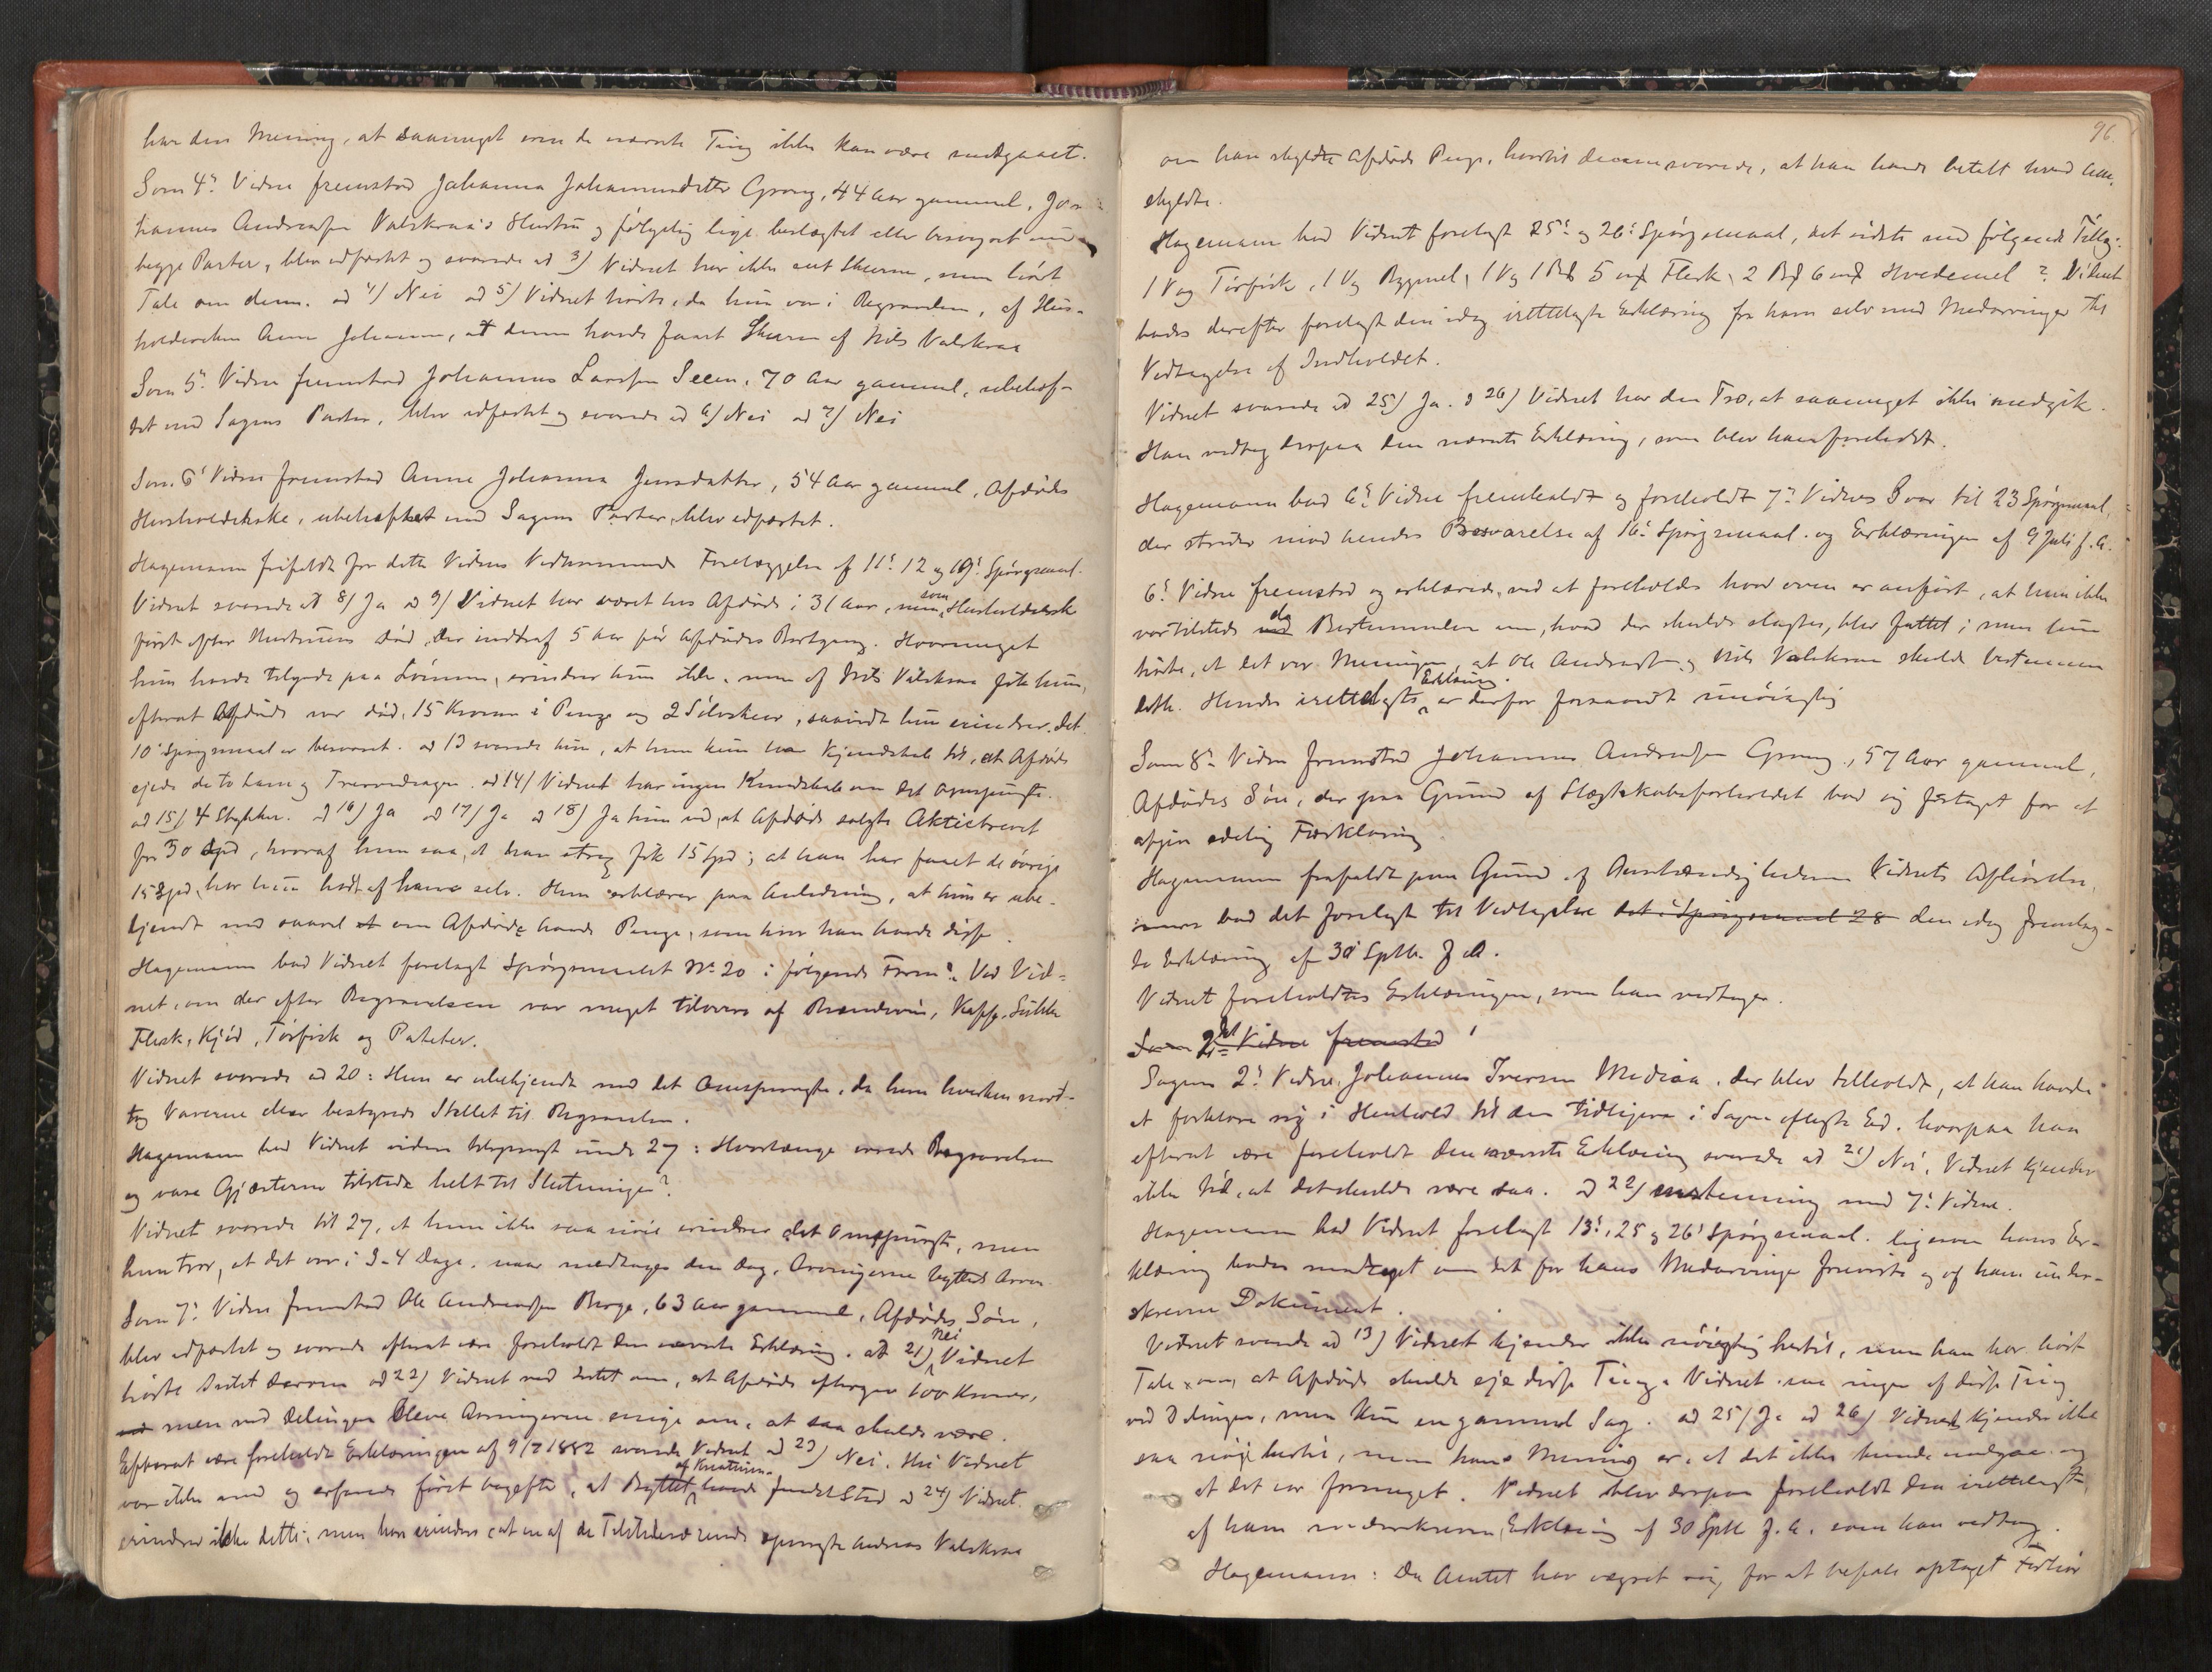 har den Mening, at saameget som de nævnte Ting ikke kan være medgaaet.
Som 4de Vidne fremstod Johanna Johannesdatter Grong, 44 Aar gammel, Jo-
hannes Andreassen Valskraa's Hustru og følgelig lige beslægtet eller besvogret med
begge Parter, blev edfæstet og svarede ad 3) Vidnet har ikke set Skeerne, men hørt
Tale om dem. ad 4) Nei ad 5) Vidnet hørte, da hun var i Begravelsen, af Hus-
holdersken Anne Johanna, at denne havde faaet Skeerne af Nils Valskraa
Som 5te Vidne fremstod Johannes Larssen Seem, 70 Aar gammel, ubehæf-
tet med Sagens Parter, blev edfæstet og svarede ad 6) Nei ad 7) Nei
Som 6te Vidne fremstod Anne Johanna Jensdatter, 54 Aar gammel, Afdødes
Husholderske, ubehæftet med Sagens Parter, blev edfæstet.
Hagemann frafaldt for dette Vidnes Vedkommende Forelæggelse af 11te 12 og 19de Spørgsmaal.
Vidnet svarede ad 8) Ja ad 9) Vidnet har været hos Afdøde i 31 Aar, men som Husholderske
først efter Hustruens Død, der indtraf 5 Aar før Afdødes Bortgang. Hvormeget
hun havde tilgode paa Lønnen, erindrer hun ikke, men af Nils Valskraa fik hun,
efterat Afdøde var død, 15 Kroner i Penge og 2 Sølvskeer, saavidt hun erindrer. Det
10de Spørgsmaal er besvaret. ad 13 svarede hun, at hun kun har Kjendskab til, at Afdøde
ejede de to Ham og Træ . ad 14) Vidnet har ingen Kundskab om det Omspurgte.
ad 15) 4 Stykker. ad 16) Ja ad 17) Ja ad 18) Ja hun ved, at Afdøde solgte Aktiebrevet
for 30 Spd, hvoraf hun saa, at han strax fik 15 Spd; at han har faaet de øvrige
15 Spd, har hun hørt af ham selv. Hun erklærer paa Anledning, at hun er ube-
kjendt med saavel at om Afdøde havde Penge, som hvor han havde disse.
Hagemann bad Vidnet forelagt Spørgsmaalet No 20 i følgende Form: Ved Vid-
net, om der efter Begravelsen var meget tilovers af Brændevin, Kaffe, Sukker
Flesk, Kjød, Tørfisk og Poteter.
Vidnet svarede ad 20: Hun er ubekjendt med det Omspurgte, da hun hverken mod-
tog Varerne eller bestyrede Stellet til Begravelsen.
Hagemann bad Vidnet videre tilspurgt under 27: Hvorlænge varede Begravelsen
og vare Gjæsterne tilstede helt til Slutningen?
Vidnet svarede til 27, at hun ikke saa nøie erindrer det Omspurgte, men
hun tror, at det var i 3-4 Dage, naar medtages den Dag, Arvingerne byttede Arven
Som 7de Vidne fremstod Ole Andreassen Berge, 63 Aar gammel, Afdødes Søn,
blev edfæstet og svarede efterat være foreholdt den nævnte Erklæring. ad 21) Nei Vidnet
hørte Intet derom ad 22) Vidnet ved Intet om, at Afdøde eftergav 100 Kroner,
men ved Delingen bleve Arvingerne enige om, at saa skulde være.
Efterat være foreholdt Erklæringen af 9/7 1882 svarede Vidnet ad 23) Nei. Thi Vidnet
var ikke med og erfarede først bagefter, at Byttet af Kreaturene havde fundet Sted ad 24) Vidnet
erindrer ikke dette; men han erindrer, at en af de Tilstedeværende spurgte Andreas Valskraa
96
om han skyldte Afdøde Penge, hvortil denne svarede, at han havde betalt hvad han
skyldte.
Hagemann bad Vidnet forelagt 25de og 26de Spørgsmaal, det sidste med følgende Tillæg:
1 Vog Tørfisk, 1 Vog Bygmel, 1 Vog 1 Bpd 5 mk Flesk, 2 Bpd 6 mk Hvedemel? Vidnet
bedes derefter forelagt den idag irettelagte Erklæring fra ham selv med Medarvinger til
Vedtagelse af Indholdet.
Vidnet svarede ad 25) Ja. ad 26) Vidnet har den Tro, at saameget ikke medgik.
Han vedtog derpaa den nævnte Erklæring, som blev ham foreholdt.
Hagemann bad 6te Vidne fremkaldt og foreholdt 7de Vidnes Svar til 23 Spørgsmaal,
der strider mod hendes Besvarelse af 16de Spørgsmaal og Erklæringen af 9 Juli f. A.
6te Vidne fremstod og erklærede, ved at foreholdes hvad oven er anført, at hun ikke
var tilstede da Bestemmelsen om, hvad der skulde slagtes, blev fattet; men hun
hørte, at det var Meningen, at Ole Andreassen og Nils Valskraa skulde bestemme
dette. Hendes irettelagte Erklæring er derfor forsaavidt unøiagtig
Som 8de Vidne fremstod Johannes Andreassen Grong, 57 Aar gammel,
Afdødes Søn, der paa Grund af Slægtskabsforholdet bad sig fritaget for at
afgive edelig Forklaring
Hagemann frafaldt paa Grund af Omstændighederne Vidnets Afhørelse,
men bad det forelagt til Vedtagelse det i Spørgsmaal 28 den idag fremlag-
te Erklæring af 30 Septb. f. A.
Vidnet foreholdtes Erklæringen, som han vedtager.
Som 2det Vidne fremstod
Sagens 2det Vidne, Johannes Iversen Mediaa, der blev tilholdt, at han havde
at forklare sig i Henhold til den tidligere i Sagen aflagte Ed, hvorpaa han
efterat være foreholdt den nævnte Erklæring svarede ad 21) Nei, Vidnet kjender
ikke til, at det skulde være saa. ad 22) enstemmig med 7de Vidne.
Hagemann bad Vidnet forelagt 13de, 25 og 26de Spørgsmaal, ligesom hans Er-
klæring bedes vedtaget om det for hans Medarvinger foreviste og af ham under-
skrevne Dokument.
Vidnet svarede ad 13) Vidnet kjender ikke nøiagtig hertil, men han har hørt
Tale om, at Afdøde skulde eje disse Ting. Vidnet saa ingen af disse Ting
ved Delingen, men kun en gammel Sag. ad 25) Ja ad 26) Vidnet kjender ikke
saa nøje hertil, men hans Mening er, at det ikke kunde medgaa og
at det var formeget. Vidnet blev derpaa foreholdt den irettelagte,
af ham underskrevne Erklæring af 30 Septb f. A. som han vedtog.
Hagemann: Da Amtet har vægret sig for at befale optaget Forhør